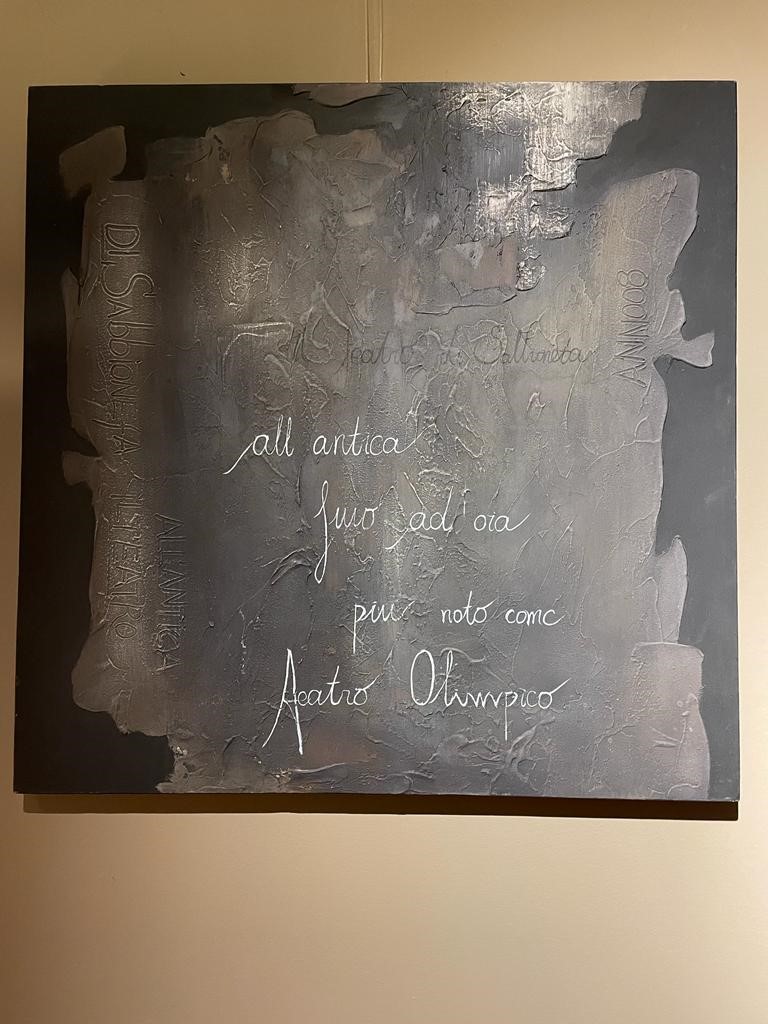 Il Teatro di
all antica
fino ad'ora
piu noto come
Teatro Olimpico
DI SABBIONETA IL TEATRO
ALL'ANTICA